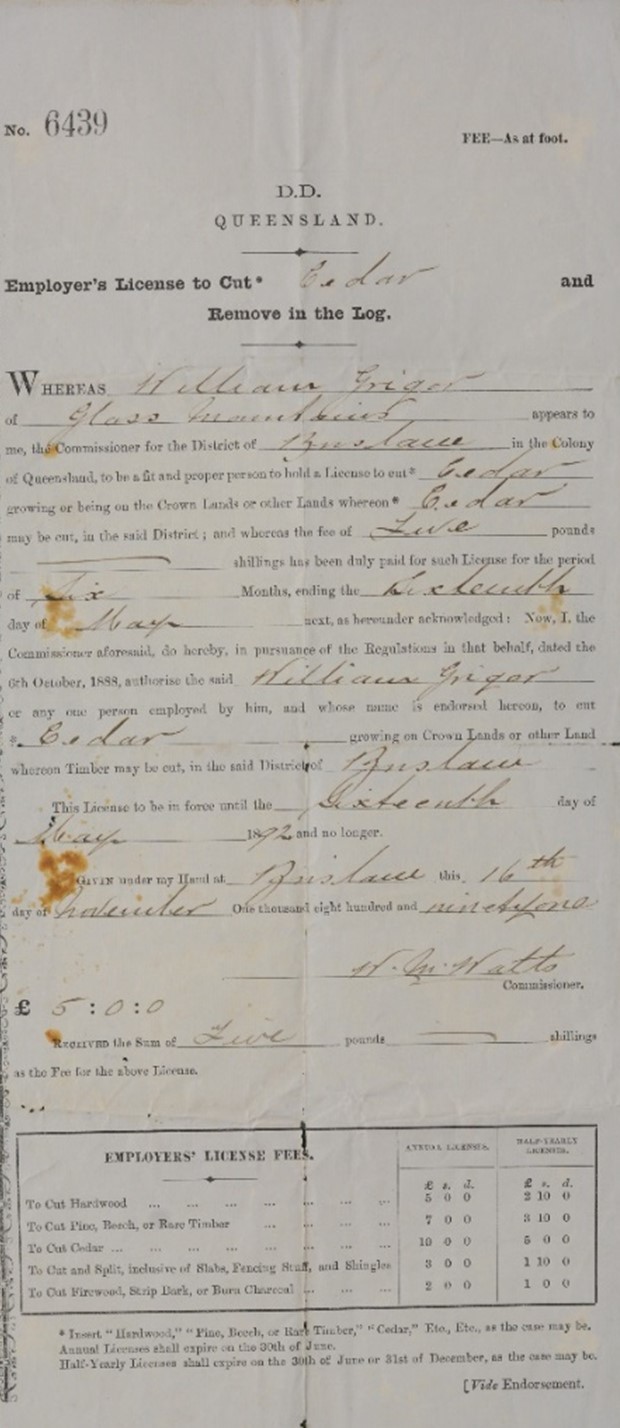 No. 6439
FEE—As at foot.
D.D.
QUEENSLAND.
Employer's License to Cut* Cedar and
Remove in the Log.
WHEREAS William Grigor
of Glass Mountains appears to
me, the Commissioner for the District of Brisbane in the Colony
of Queensland, to be a fit and proper person to hold a License to cut* Cedar
growing or being on the Crown Lands or other Lands whereon* Cedar
may be cut, in the said District; and whereas the fee of Five pounds
shillings has been duly paid for such License for the period
of Six Months, ending the Sixteenth
day of May next, as hereunder acknowledged: Now, I, the
Commissioner aforesaid, do hereby, in pursuance of the Regulations in that behalf, dated the
6th October, 1888, authorise the said William Grigor
or any one person employed by him, and whose name is endorsed hereon, to cut
* Cedar growing on Crown Lands or other Land
whereon Timber may be cut, in the said District of Brisbane
This License to be in force until the Sixteenth day of
May 1892 and no longer.
GIVEN under my Hand at Brisbane this 16th
day of November One thousand eight hundred and ninety one
W. M. Watts
Commissioner.
£ 5:0:0
RECEIVED the Sum of Five pounds — shillings
as the Fee for the above License.
EMPLOYERS' LICENSE FEES. ANNUAL LICENSES. HALF-YEARLY LICENSES.
£ s. d. £ s. d.
To Cut Hardwood ... ... ... ... ... ... 5 0 0 2 10 0
To Cut Pine, Beech, or Rare Timber ... ... ... ... 7 0 0 3 10 0
To Cut Cedar ... ... ... ... ... ... ... 10 0 0 5 0 0
To Cut and Split, inclusive of Slabs, Fencing Stuff, and Shingles 3 0 0 1 10 0
To Cut Firewood, Strip Bark, or Burn Charcoal ... ... ... 2 0 0 1 0 0
* Insert "Hardwood," "Pine, Beech, or Rare Timber," "Cedar," Etc., Etc., as the case may be.
Annual Licenses shall expire on the 30th of June.
Half-Yearly Licenses shall expire on the 30th of June or 31st of December, as the case may be.
[Vide Endorsement.